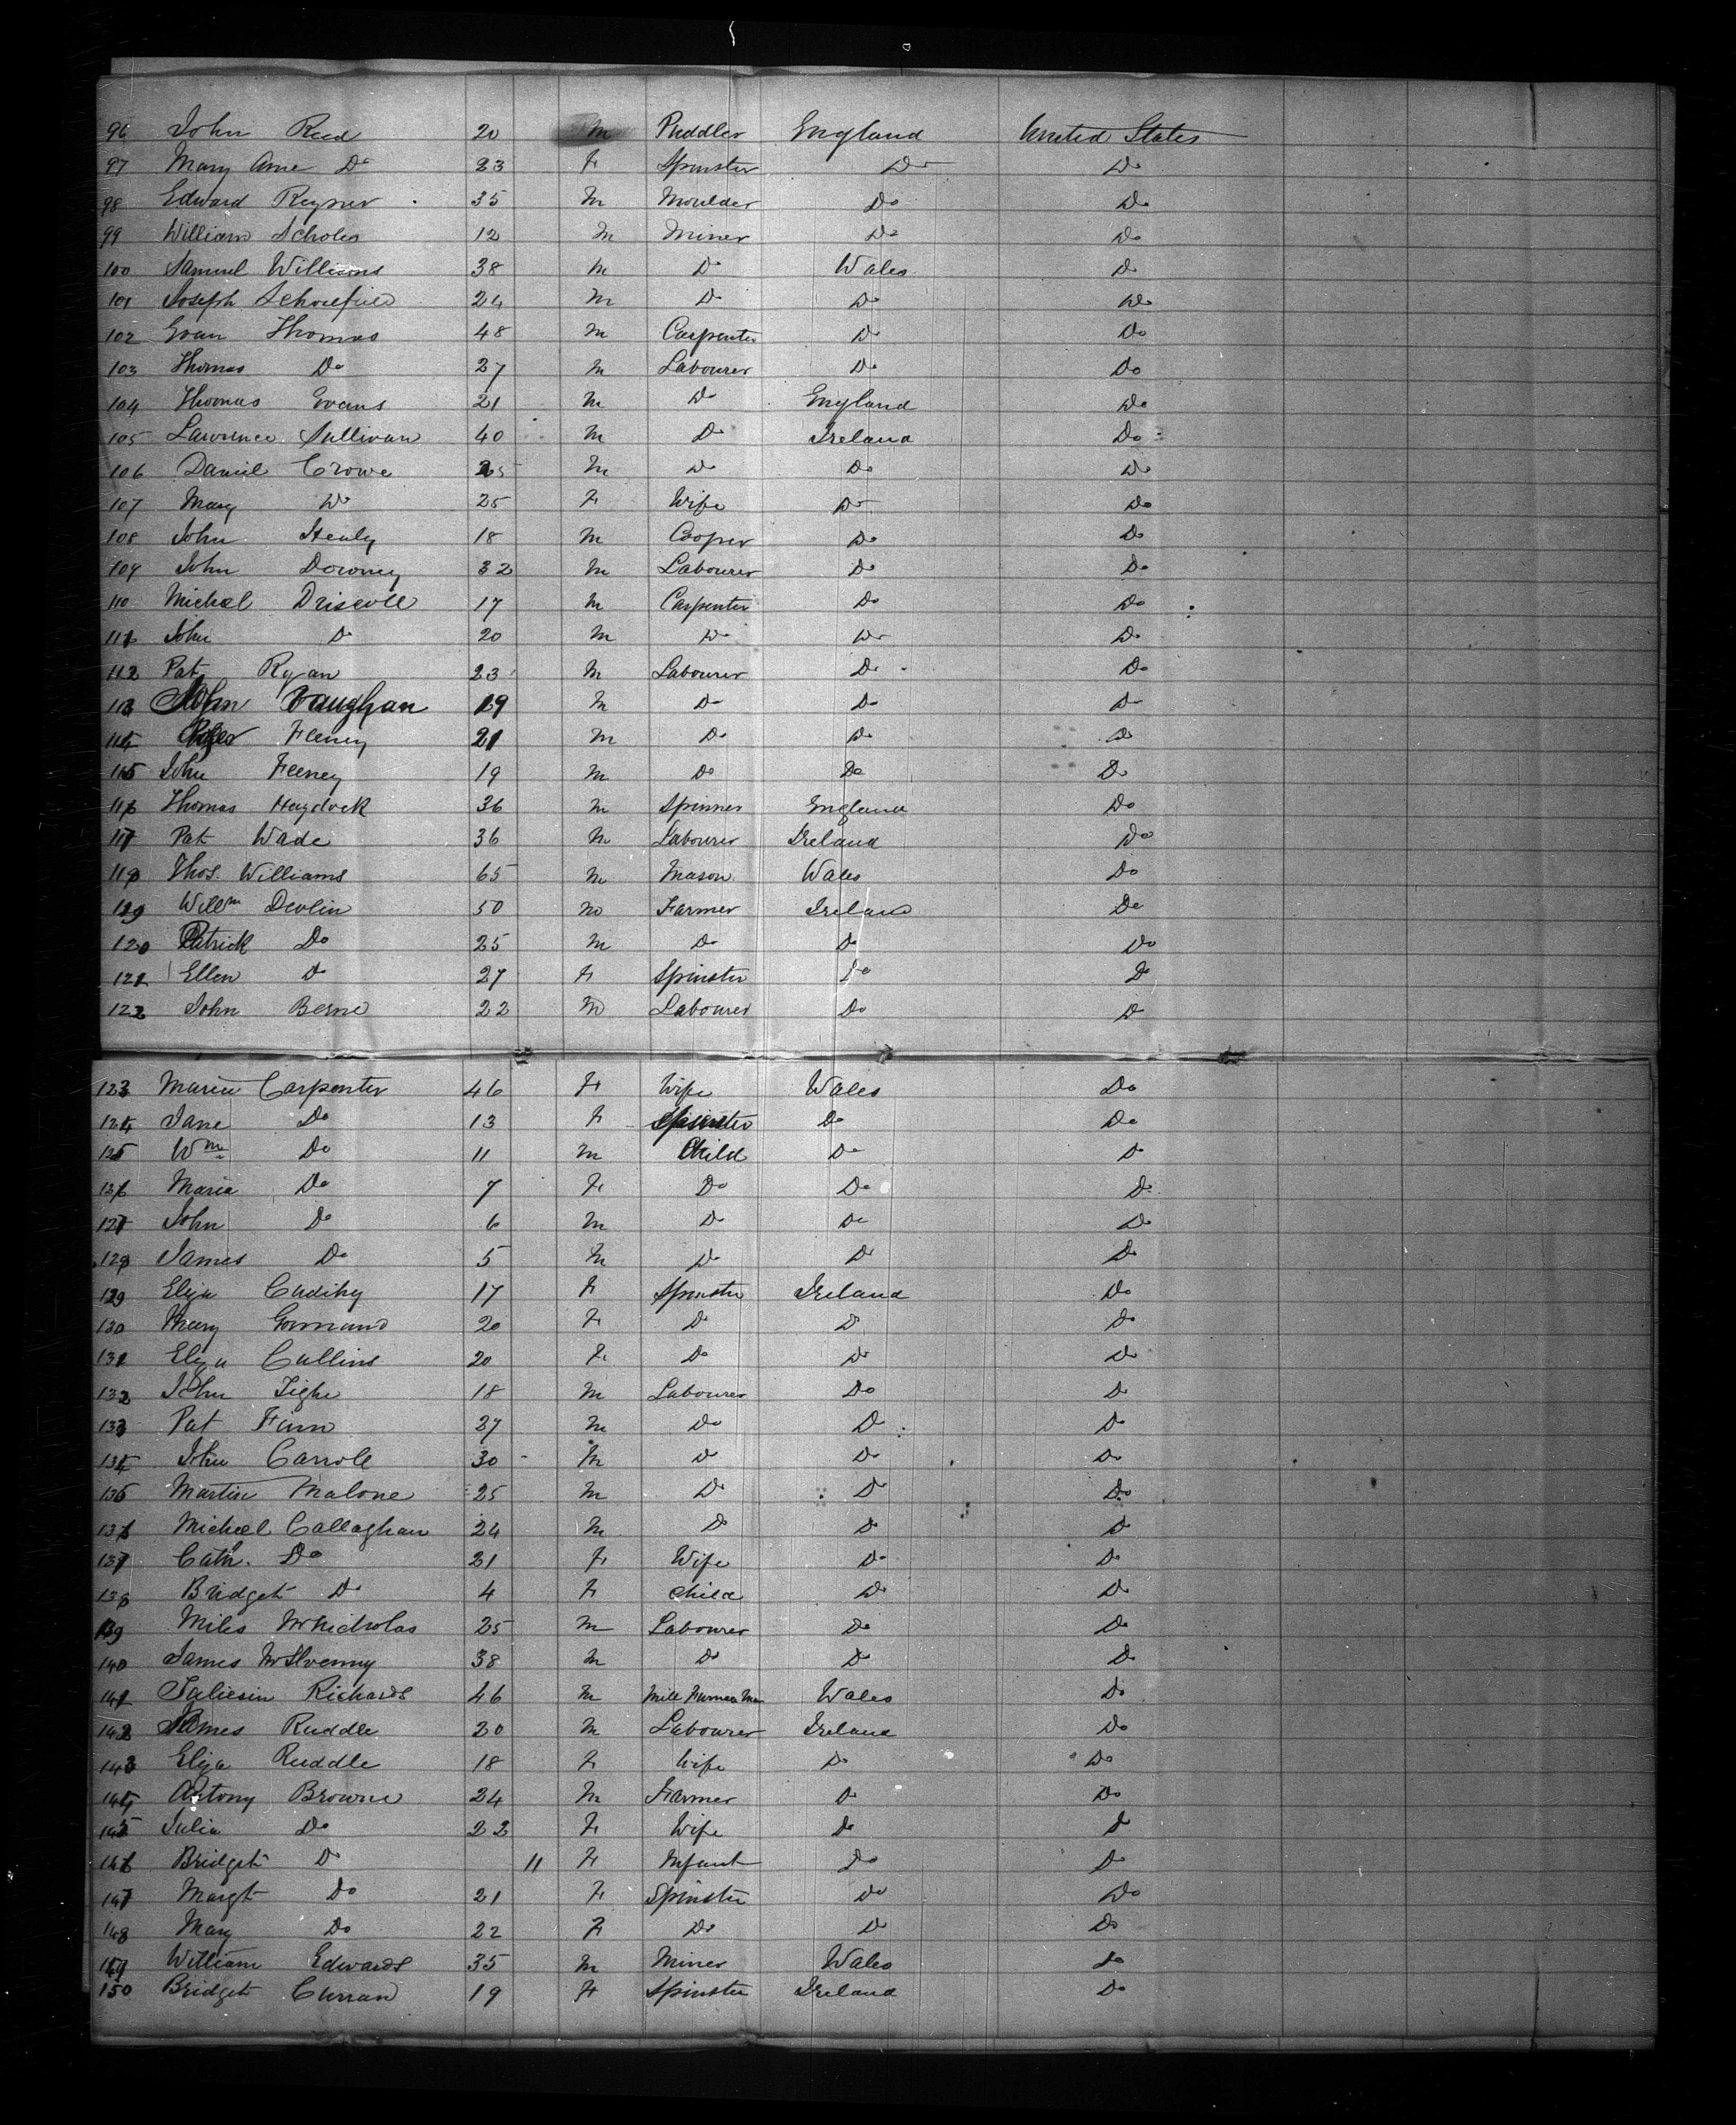 96 John Reed 20 M Puddler England United States
97 Mary Anne Do 23 F Spinster Do Do
98 Edward Reyner 35 M Moulder Do Do
99 William Scholes 12 M Miner Do Do
100 Samuel Williams 38 M Do Wales Do
101 Joseph Schoefield 24 M Do Do Do
102 Evan Thomas 48 M Carpenter Do Do
103 Thomas Do 27 M Labourer Do Do
104 Thomas Evans 21 M Do England Do
105 Lawrence Sullivan 40 M Do Ireland Do
106 Daniel Crowe 25 M Do Do Do
107 Mary Do 25 F Wife Do Do
108 John Healy 18 M Cooper Do Do
109 John Downey 32 M Labourer Do Do
110 Michael Driscoll 17 M Carpenter Do Do
111 John Do 20 M Do Do Do
112 Pat Ryan 23 M Labourer Do Do
113 John Vaughan 19 M Do Do Do
114 Feeney 21 M Do Do Do
115 John Feeney 19 M Do Do Do
116 Thomas Haydock 36 M Spinner England Do
117 Pat Wade 36 M Labourer Ireland Do
118 Thos. Williams 65 M Mason Wales Do
119 Willm Devlin 50 M Farmer Ireland Do
120 Patrick Do 25 M Do Do Do
121 Ellen Do 27 F Spinster Do Do
122 John Berne 22 M Labourer Do Do
123 Maria Carpenter 46 F Wife Wales Do
124 Jane Do 13 F Spinster Do Do
125 Wm Do 11 M Child Do Do
126 Maria Do 7 F Do Do Do
127 John Do 6 M Do Do Do
128 James Do 5 M Do Do Do
129 Eliza Cudihy 17 F Spinster Ireland Do
130 Mary 20 F Do Do Do
131 Eliza Cullins 20 F Do Do Do
132 John Tighe 18 M Labourer Do Do
133 Pat Finn 27 M Do Do Do
134 John Carroll 30 M Do Do Do
135 Martin Malone 25 M Do Do Do
136 Michael Callaghan 24 M Do Do Do
137 Cath. Do 21 F Wife Do Do
138 Bridget Do 4 F Child Do Do
139 Miles McNicholas 25 M Labourer Do Do
140 James McIlvenny 38 M Do Do Do
141 Taliesin Richards 46 M Mill Furnace Man Wales Do
142 James Ruddle 20 M Labourer Ireland Do
143 Eliza Ruddle 18 F Wife Do Do
144 Antony Browne 24 M Farmer Do Do
145 Julia Do 22 F Wife Do Do
146 Bridget Do 11 F Infant Do Do
147 Margt Do 21 F Spinster Do Do
148 Mary Do 22 F Do Do Do
149 William Edwards 35 M Miner Wales Do
150 Bridget Curran 19 F Spinster Ireland Do